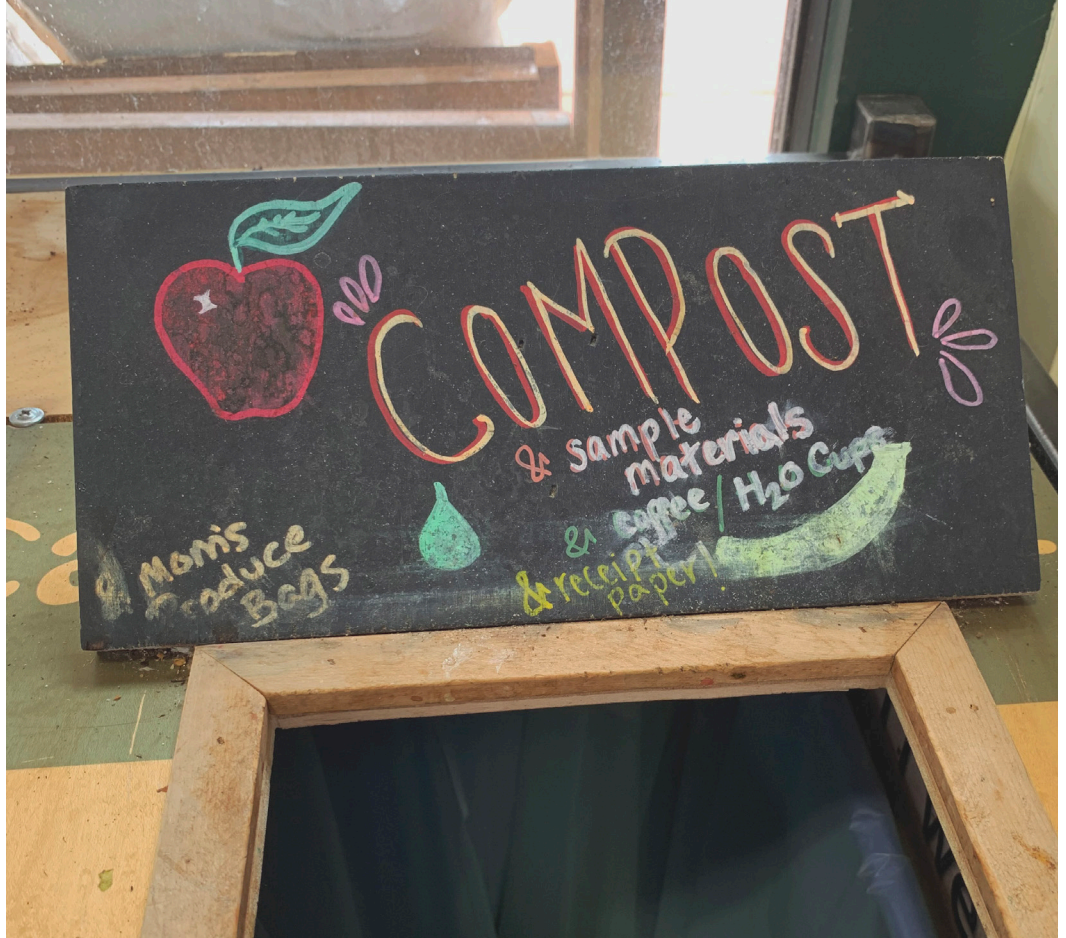 COMPOST
& sample
materials
& coffee/H2O Cups
& receipt
paper!
& Mom's
Produce
Bags